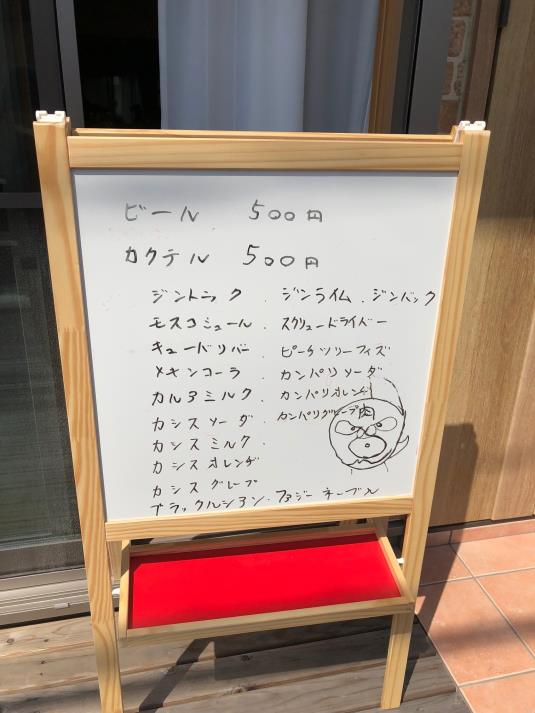 ビール 500円
カクテル 500円
ジントニック . ジンライム . ジンバック
モスコミュール . スクリュードライバー
キューバリバー . ピーチツリーフィズ
メキシコーラ カンパリソーダ
カルアミルク . カンパリオレンヂ
カシスソーダ . カンパリグレープ 肉
カシスミルク .
カシスオレンヂ
カシスグレープ
ブラックルシアン . ファジーネーブル